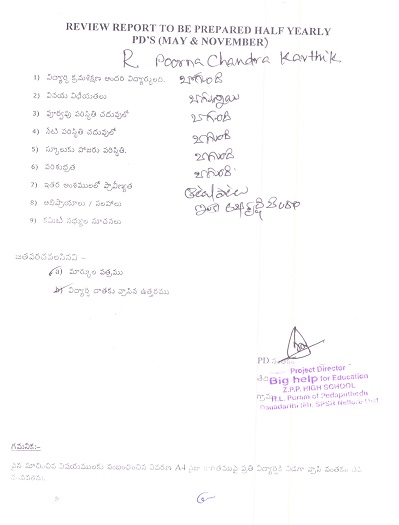 REVIEW REPORT TO BE PREPARED HALF YEARLY
PD'S (MAY & NOVEMBER)
R Poorna Chandra Karthik
1) విద్యార్థి క్రమశిక్షణ అందరి విద్యార్థులందు. బాగుంది
2) వినయ విధేయతలు బాగున్నాయి
3) పూర్వపు పరిస్థితి చదువులో బాగుంది
4) నేటి పరిస్థితి చదువులో బాగుంది
5) స్కూలుకు హాజరు పరిస్థితి. బాగుంది
6) పరిశుభ్రత బాగుంది
7) ఇతర అంశములలో ప్రావీణ్యత
8) అభిప్రాయాలు / సలహాలు
9) కమిటి సభ్యుల సూచనలు
జతపరచవలసినవి -
a) మార్కుల పత్రము
b) విద్యార్థి దాతకు వ్రాసిన ఉత్తరము
PD
Project Director
Big help for Education
Z.P.P. HIGH SCHOOL
R.L. Puram of Pedaparthedu
SPSR Nellore Dist
గమనిక:-
పైన సూచించిన విషయములకు సంబంధించిన వివరణ A4 ప్రతి విద్యార్థికి